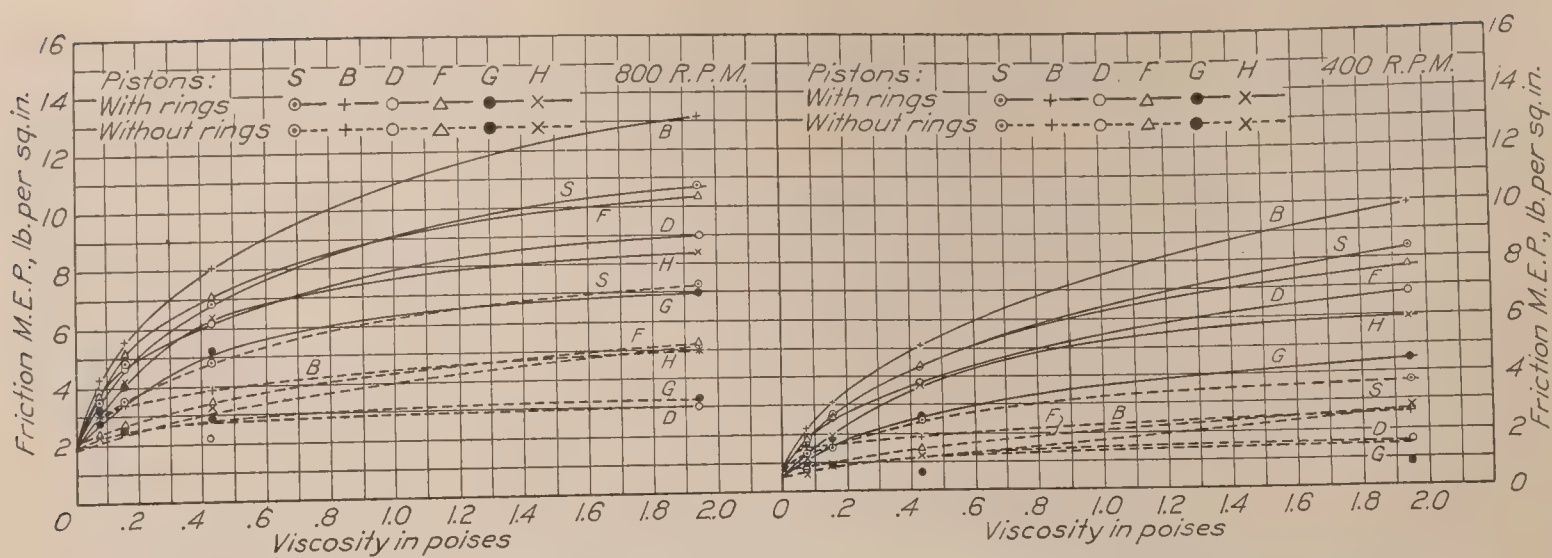 Friction M.E.P., lb. per sq. in.
16
14
12
10
8
6
4
2
0
Pistons: S B D F G H 800 R.P.M.
With rings
Without rings
B
S
F
D
H
S
G
B
F
H
G
D
0 .2 .4 .6 .8 1.0 1.2 1.4 1.6 1.8 2.0
Viscosity in poises
Pistons: S B D F G H 400 R.P.M.
With rings
Without rings
B
S
F
D
H
G
S
F
B
D
G
0 .2 .4 .6 .8 1.0 1.2 1.4 1.6 1.8 2.0
Viscosity in poises
16
14
12
10
8
6
4
2
0
Friction M.E.P., lb. per sq. in.